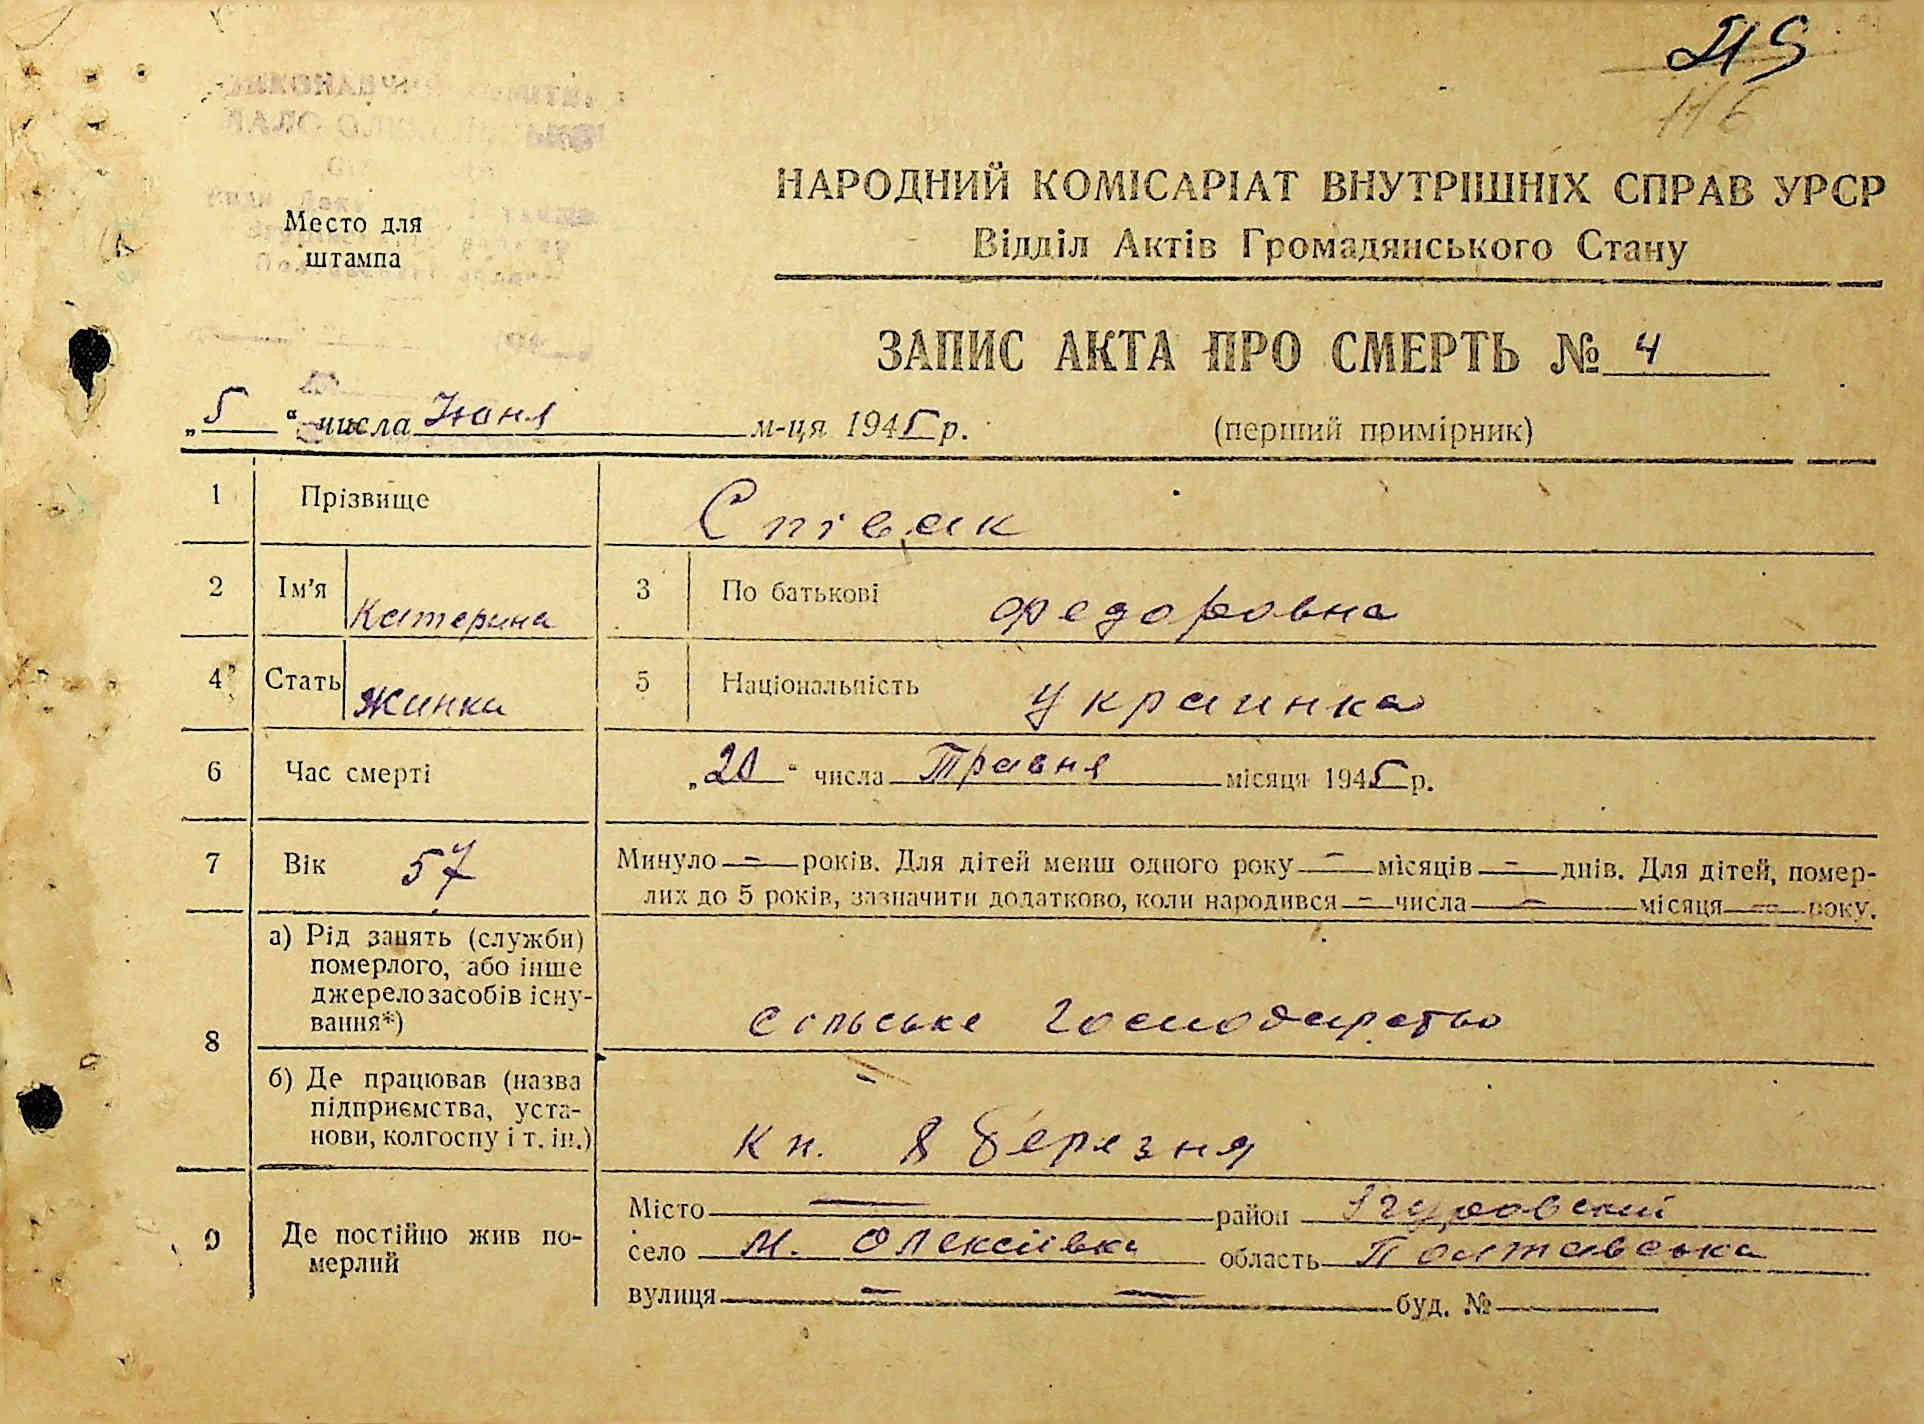 116
НАРОДНИЙ КОМІСАРІАТ ВНУТРІШНІХ СПРАВ УРСР
Відділ Актів Громадянського Стану
Место для
штампа
ЗАПИС АКТА ПРО СМЕРТЬ № 4
„5“ числа Июня м-ця 1945 р. (перший примірник)
1 Прізвище Співак
2 Ім'я Катерина 3 По батькові Федоровна
4 Стать Жинка 5 Національність Украинка
6 Час смерті „20“ числа Травня місяця 1945 р.
7 Вік 57 Минуло — років. Для дітей менш одного року — місяців — днів. Для дітей, помер-
лих до 5 років, зазначити додатково, коли народився — числа — місяця — року.
8 а) Рід занять (служби)
померлого, або інше
джерело засобів існу-
вання*)
сільське господарство
б) Де працював (назва
підприємства, уста-
нови, колгоспу і т. ін.)
кн. 8 березня
9 Де постійно жив по-
мерлий
Місто — район Згуровский
село М. Олексіівка область Полтавська
вулиця — — буд. №